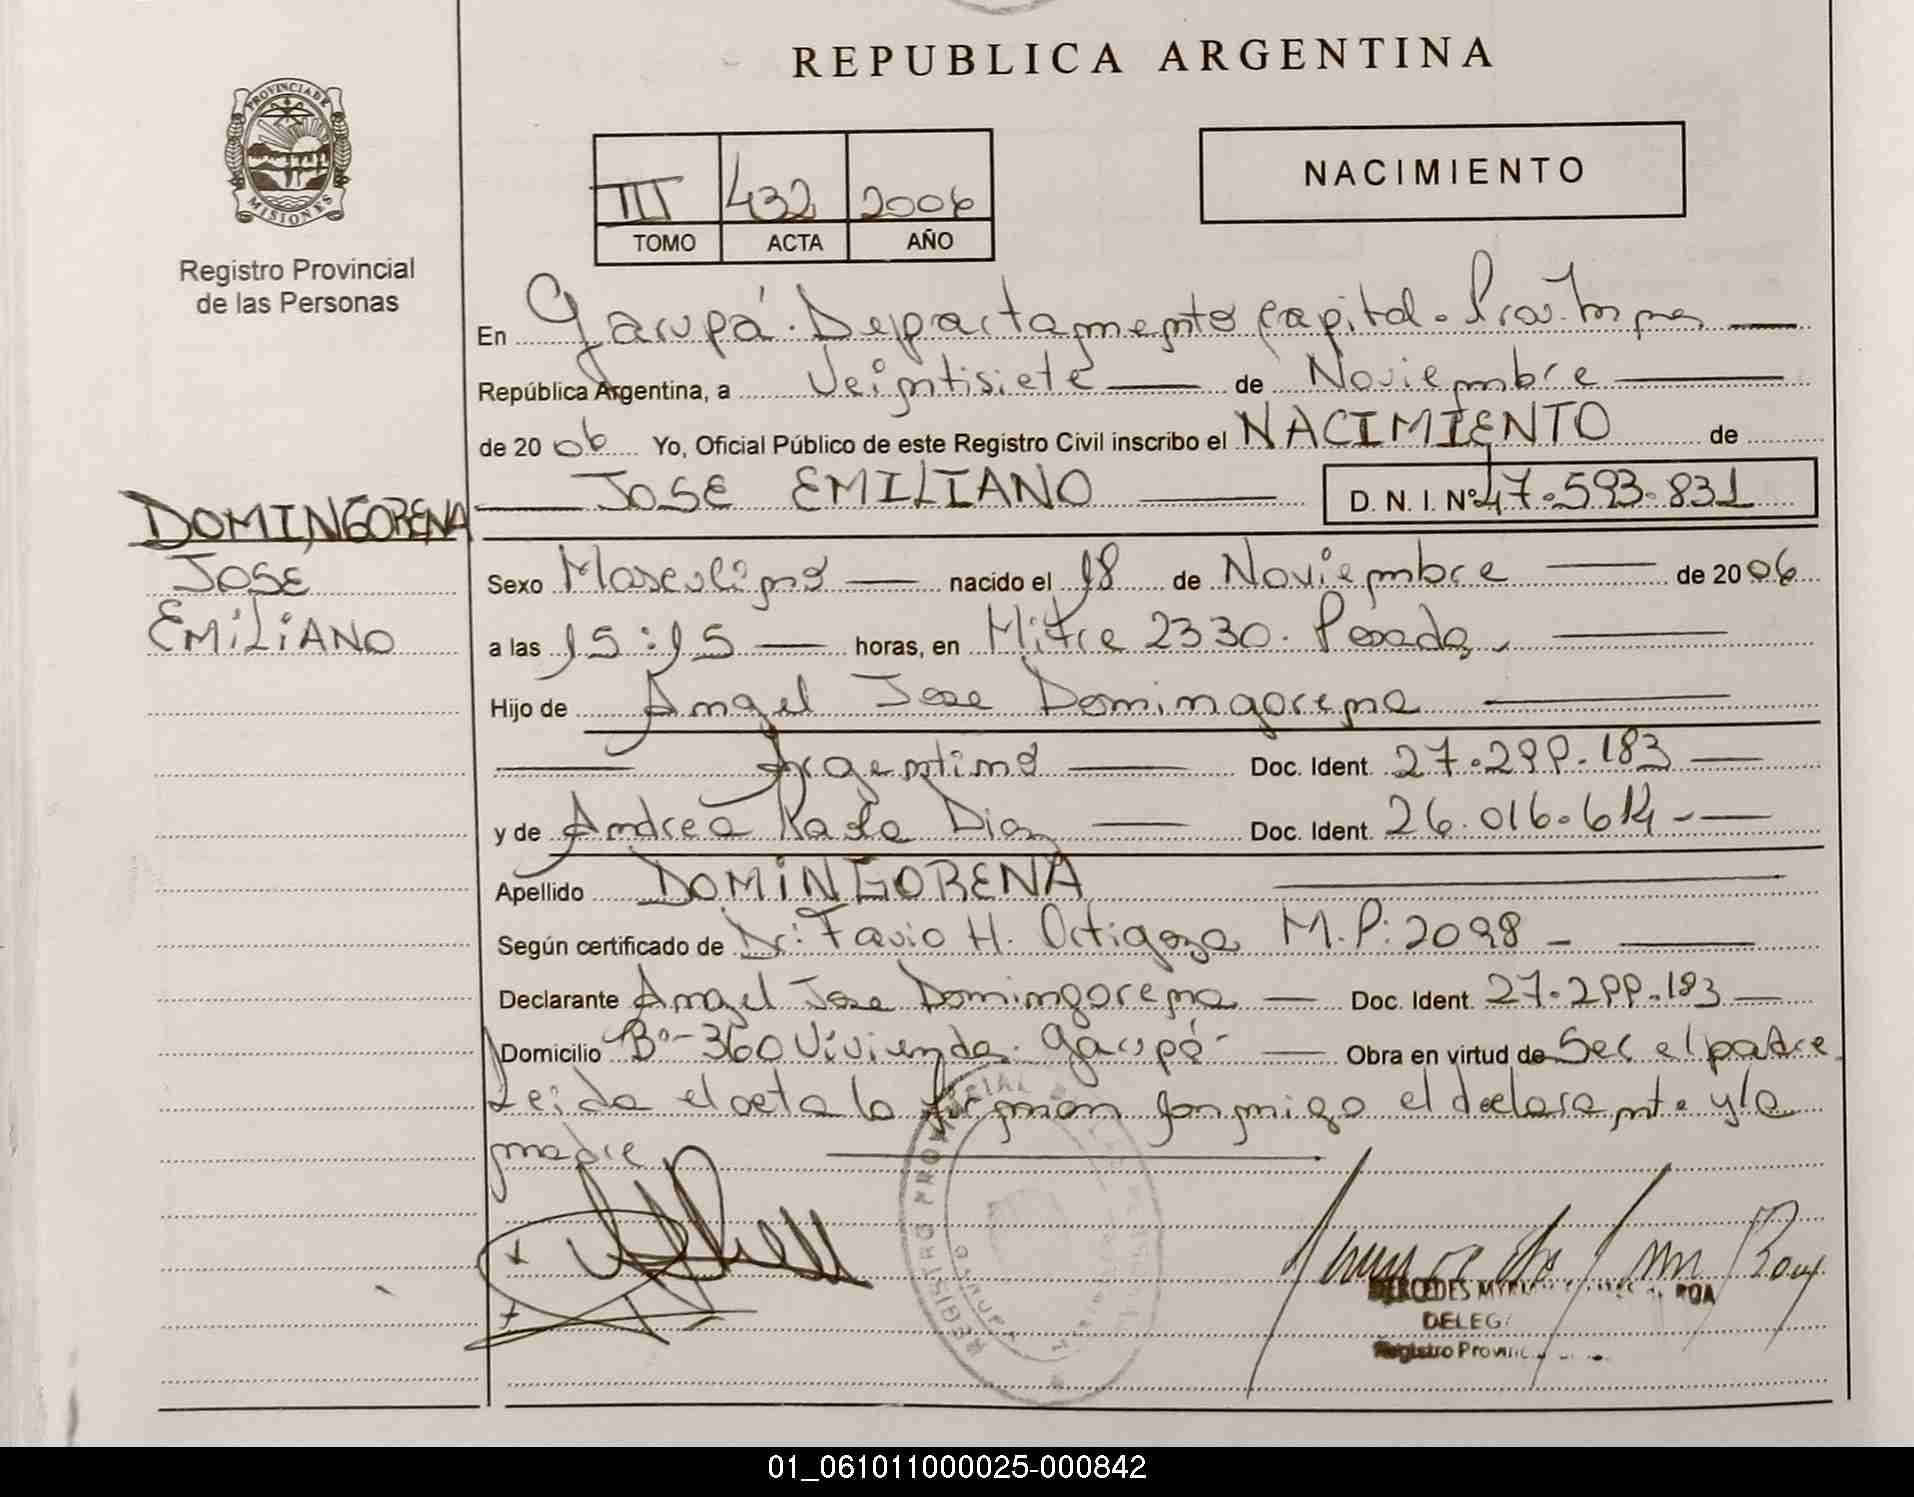 REPUBLICA ARGENTINA
PROVINCIA DE
MISIONES
Registro Provincial
de las Personas
III 432 2006
TOMO ACTA AÑO
NACIMIENTO
En Garupá. Departamento Capital.
República Argentina, a Veintisiete de Noviembre
de 20 06 Yo, Oficial Público de este Registro Civil inscribo el NACIMIENTO de
JOSE EMILIANO D. N. I. Nº 47.593.831
DOMINGORENA
JOSE
EMILIANO
Sexo Masculino nacido el 18 de Noviembre de 20 06
a las 15:15 horas, en Mitre 2330. Posadas
Hijo de Angel Jose Domingorena
Argentino Doc. Ident. 27.299.183
y de Andrea Paola Diaz Doc. Ident. 26.016.614
Apellido DOMINGORENA
Según certificado de Dr: Favio H. Ortigoza M.P: 2098
Declarante Angel Jose Domingorena Doc. Ident. 27.299.183
Domicilio Bº-360 Viviendas. Garupá Obra en virtud de Ser el padre
Leida el acta la firman conmigo el declarante y la
madre
REGISTRO PROVINCIAL
GARUPA
MERCEDES ROA
DELEG
Registro Provinc
01_061011000025-000842